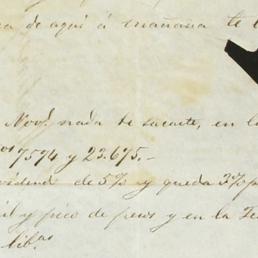 a de aquí á mañana te
Nov.e nada te sacaste, en l
os 7574 y 23.675,-
idendo de 5% y queda 3% p
il y pico de pesos y en la Te
lib.as